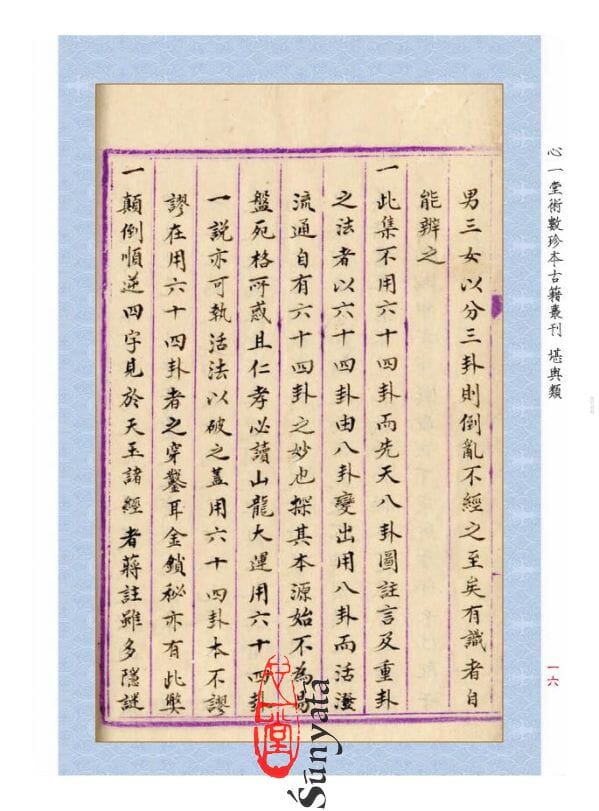 心一堂術數珍本古籍叢刊 堪輿類
一六
男三女以分三卦則倒亂不經之至矣有識者自
能辨之
一此集不用六十四卦而先天八卦圖註言及重卦
之法者以六十四卦由八卦變出用八卦而活潑
流通自有六十四卦之妙也探其本源始不為易
盤死格所惑且仁孝必讀山龍大運用六十四卦
一說亦可執活法以破之蓋用六十四卦本不謬
謬在用六十四卦者之穿鑿耳金鎖秘亦有此弊
一顛倒順逆四字見於天玉諸經者蔣註雖多隱謎
Śūnyatā